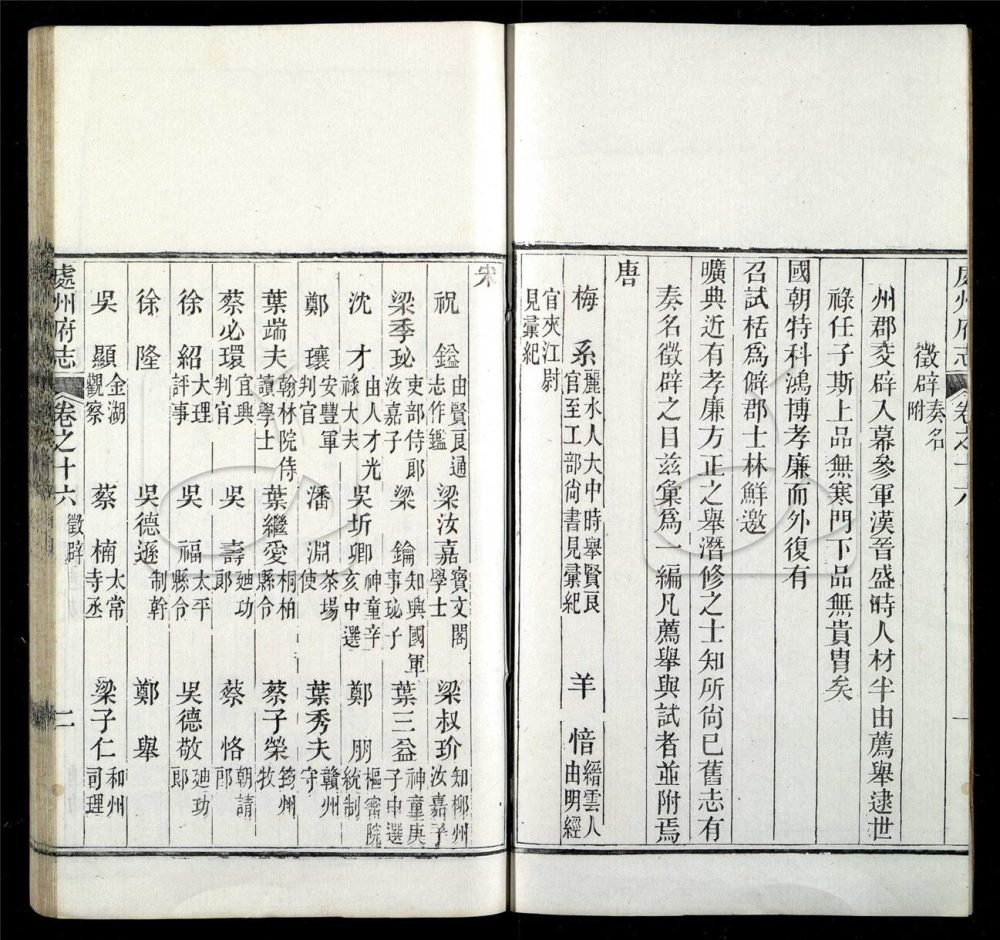 處州府志
卷之十六
一
徵辟奏名附
州郡交辟入幕參軍漢晉盛時人材半由薦舉逮世
祿任子斯上品無寒門下品無貴胄矣
國朝特科鴻博孝廉而外復有
召試栝爲僻郡士林鮮邀
曠典近有孝廉方正之舉潛修之士知所尚已舊志有
奏名徵辟之目茲彙爲一編凡薦舉與試者並附焉
唐
梅系麗水人大中時舉賢良官至工部尚書見彙紀
羊愔縉雲人由明經
官夾江尉見彙紀
宋
祝鎰由賢良通志作鑑
梁汝嘉寶文閣學士
梁叔玠知郴州汝嘉子
梁季珌吏部侍郎汝嘉子
梁鑰知興國軍事珌子
葉三益神童庚子中選
沈才由人才光祿大夫
吳圻卿神童辛亥中選
鄭朋樞密院統制
鄭瓌安豐軍判官
潘淵茶場使
葉秀夫贛州守
葉端夫翰林院侍讀學士
葉繼愛桐柏縣令
蔡子榮筠州牧
蔡必環宜興判官
吳壽廸功郎
蔡恪朝請郎
徐紹大理評事
吳福太平縣令
吳德敬廸功郎
徐隆
吳德遜制幹
鄭舉
吳顯金湖觀察
蔡楠太常寺丞
梁子仁和州司理
處州府志
卷之十六
徵辟
二